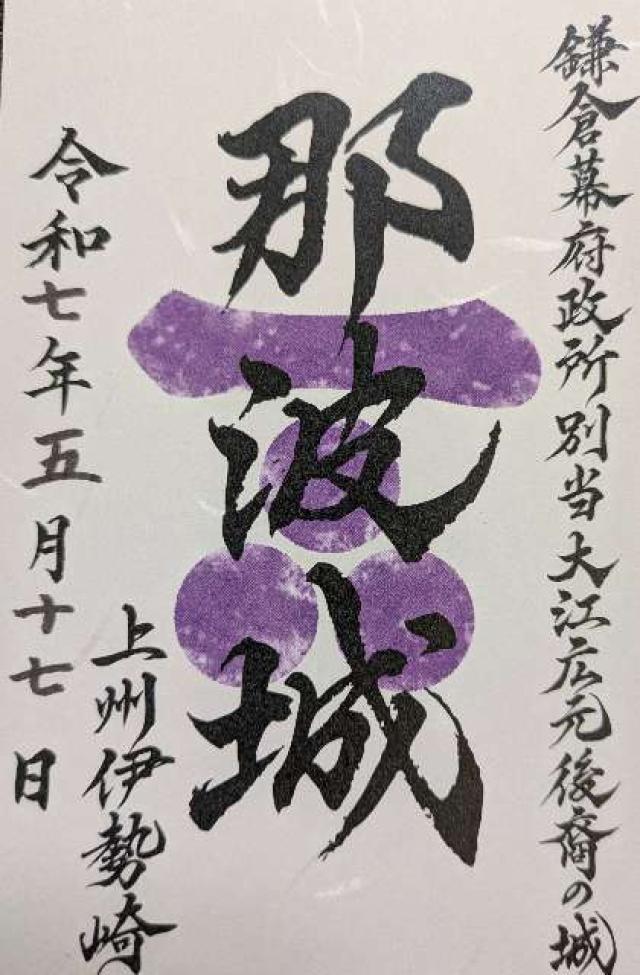 鎌倉幕府政所別当大江広元後裔の城
那波城
上州伊勢崎
令和七年五月十七日